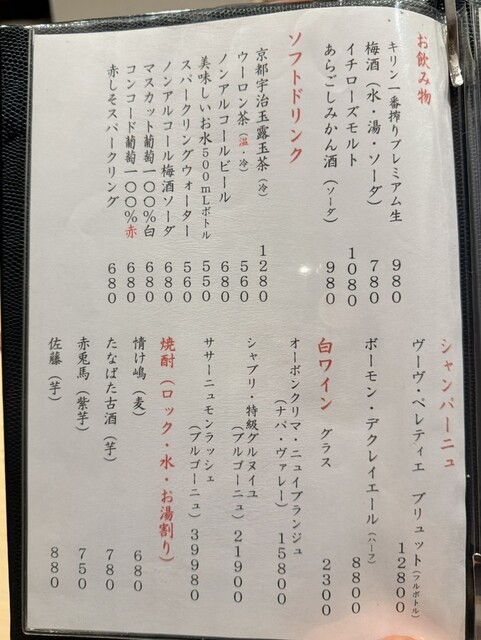 お飲み物
キリン一番搾りプレミアム生 980
梅酒（水・湯・ソーダ） 780
イチローズモルト 1080
あらごしみかん酒（ソーダ） 980
ソフトドリンク
京都宇治玉露玉茶（冷） 1280
ウーロン茶（温・冷） 560
ノンアルコールビール 680
美味しいお水500mLボトル 550
スパークリングウォーター 560
ノンアルコール梅酒ソーダ 680
マスカット葡萄一〇〇%白 680
コンコード葡萄一〇〇%赤 680
赤しそスパークリング 680
シャンパーニュ
ヴーヴ・ペレティエ ブリュット（フルボトル） 12800
ボーモン・デクレイエール（ハーフ） 8800
白ワイン グラス 2300
オーボンクリマ・ニュイブランジュ
（ナパ・ヴァレー） 15800
シャブリ・特級グルヌイユ
（ブルゴーニュ） 21900
ササーニュモンラッシェ
（ブルゴーニュ） 39980
焼酎（ロック・水・お湯割り）
情け嶋（麦） 680
たなばた古酒（芋） 780
赤兎馬（紫芋） 750
佐藤（芋） 880